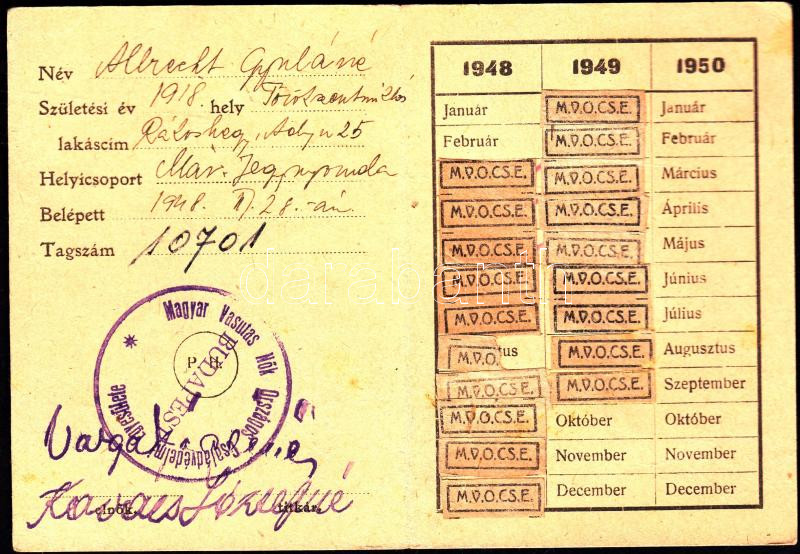 Név Albrecht Gyuláné
Születési év 1918 hely Törökszentmiklós
lakáscím Rákoshegy, Ady u 25
Helyicsoport Máv. Jegynyomda
Belépett 1948. II. 28.-án
Tagszám 10701
Magyar Vasutas Nők Országos Családvédelmi Egyesülete
BUDAPEST
P. H.
Kovács Józsefné
elnök. titkár.
1948 1949 1950
Január M.V.O.CS.E. Január
Február M.V.O.CS.E. Február
M.V.O.CS.E. M.V.O.CS.E. Március
M.V.O.CS.E. M.V.O.CS.E. Április
M.V.O.CS.E. M.V.O.CS.E. Május
M.V.O.CS.E. M.V.O.CS.E. Június
M.V.O.CS.E. M.V.O.CS.E. Július
M.V.O. tus M.V.O.CS.E. Augusztus
M.V.O.CS.E. M.V.O.CS.E. Szeptember
M.V.O.CS.E. Október Október
M.V.O.CS.E. November November
M.V.O.CS.E. December December
darabanth